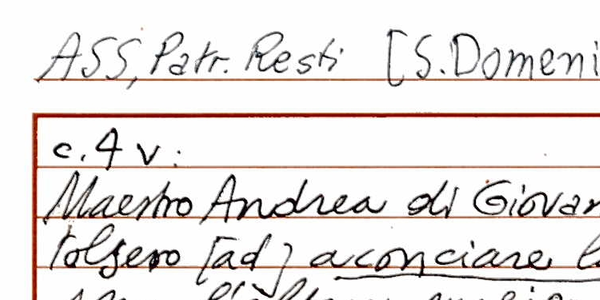 ASS, Patr. Resti [S. Domeni
c. 4 v:
Maestro Andrea di Giovan
tolsero [ad] aconciare l